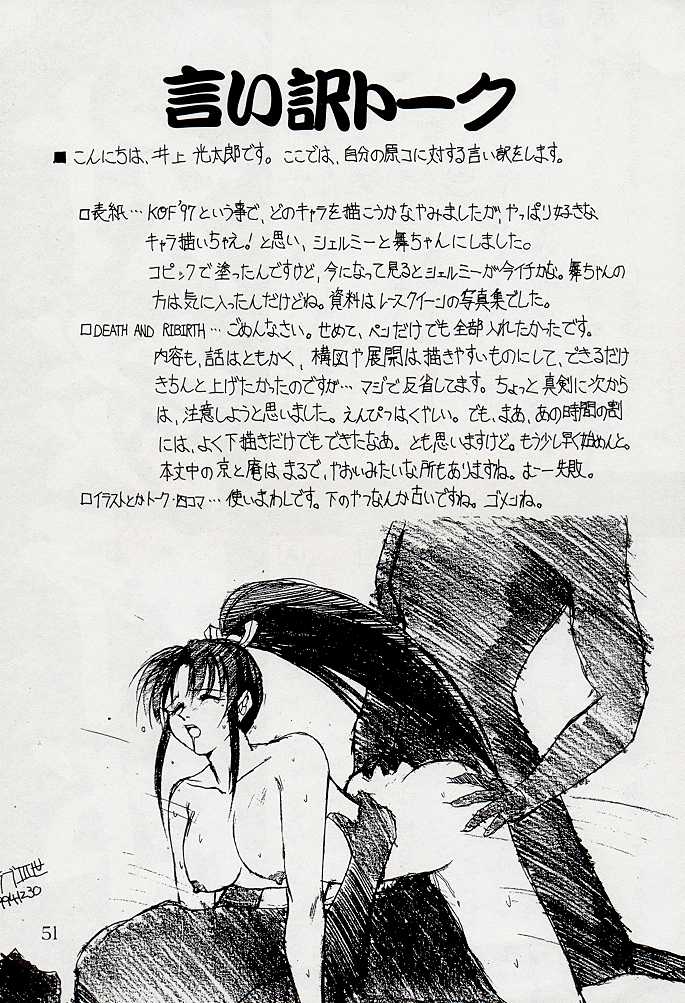 言い訳トーク
■ こんにちは、井上 光太郎です。ここでは、自分の原コに対する言い訳をします。
□表紙… KOF'97という事で、どのキャラを描こうかなやみましたが、やっぱり好きな
キャラ描いちゃえ！と思い、シェルミーと舞ちゃんにしました。
コピックで塗ったんですけど、今になって見るとシェルミーが今イチかな。舞ちゃんの
方は気に入ったんだけどね。資料はレースクイーンの写真集でした。
□DEATH AND RIBIRTH… ごめんなさい。せめて、ペンだけでも全部入れたかったです。
内容も、話はともかく、構図や展開は描きやすいものにして、できるだけ
きちんと上げたかったのですが… マジで反省してます。ちょっと真剣に次から
は、注意しようと思いました。えんぴつはくやしい。でも、まあ、あの時間の割
には、よく下描きだけでもできたなあ。とも思いますけど。もう少し早く始めんと。
本文中の京と庵は、まるで、やおいみたいな所もありますね。むー失敗。
□イラストとかトーク・四コマ… 使いまわしです。下のやつなんか古いですね。ゴメンね。
51